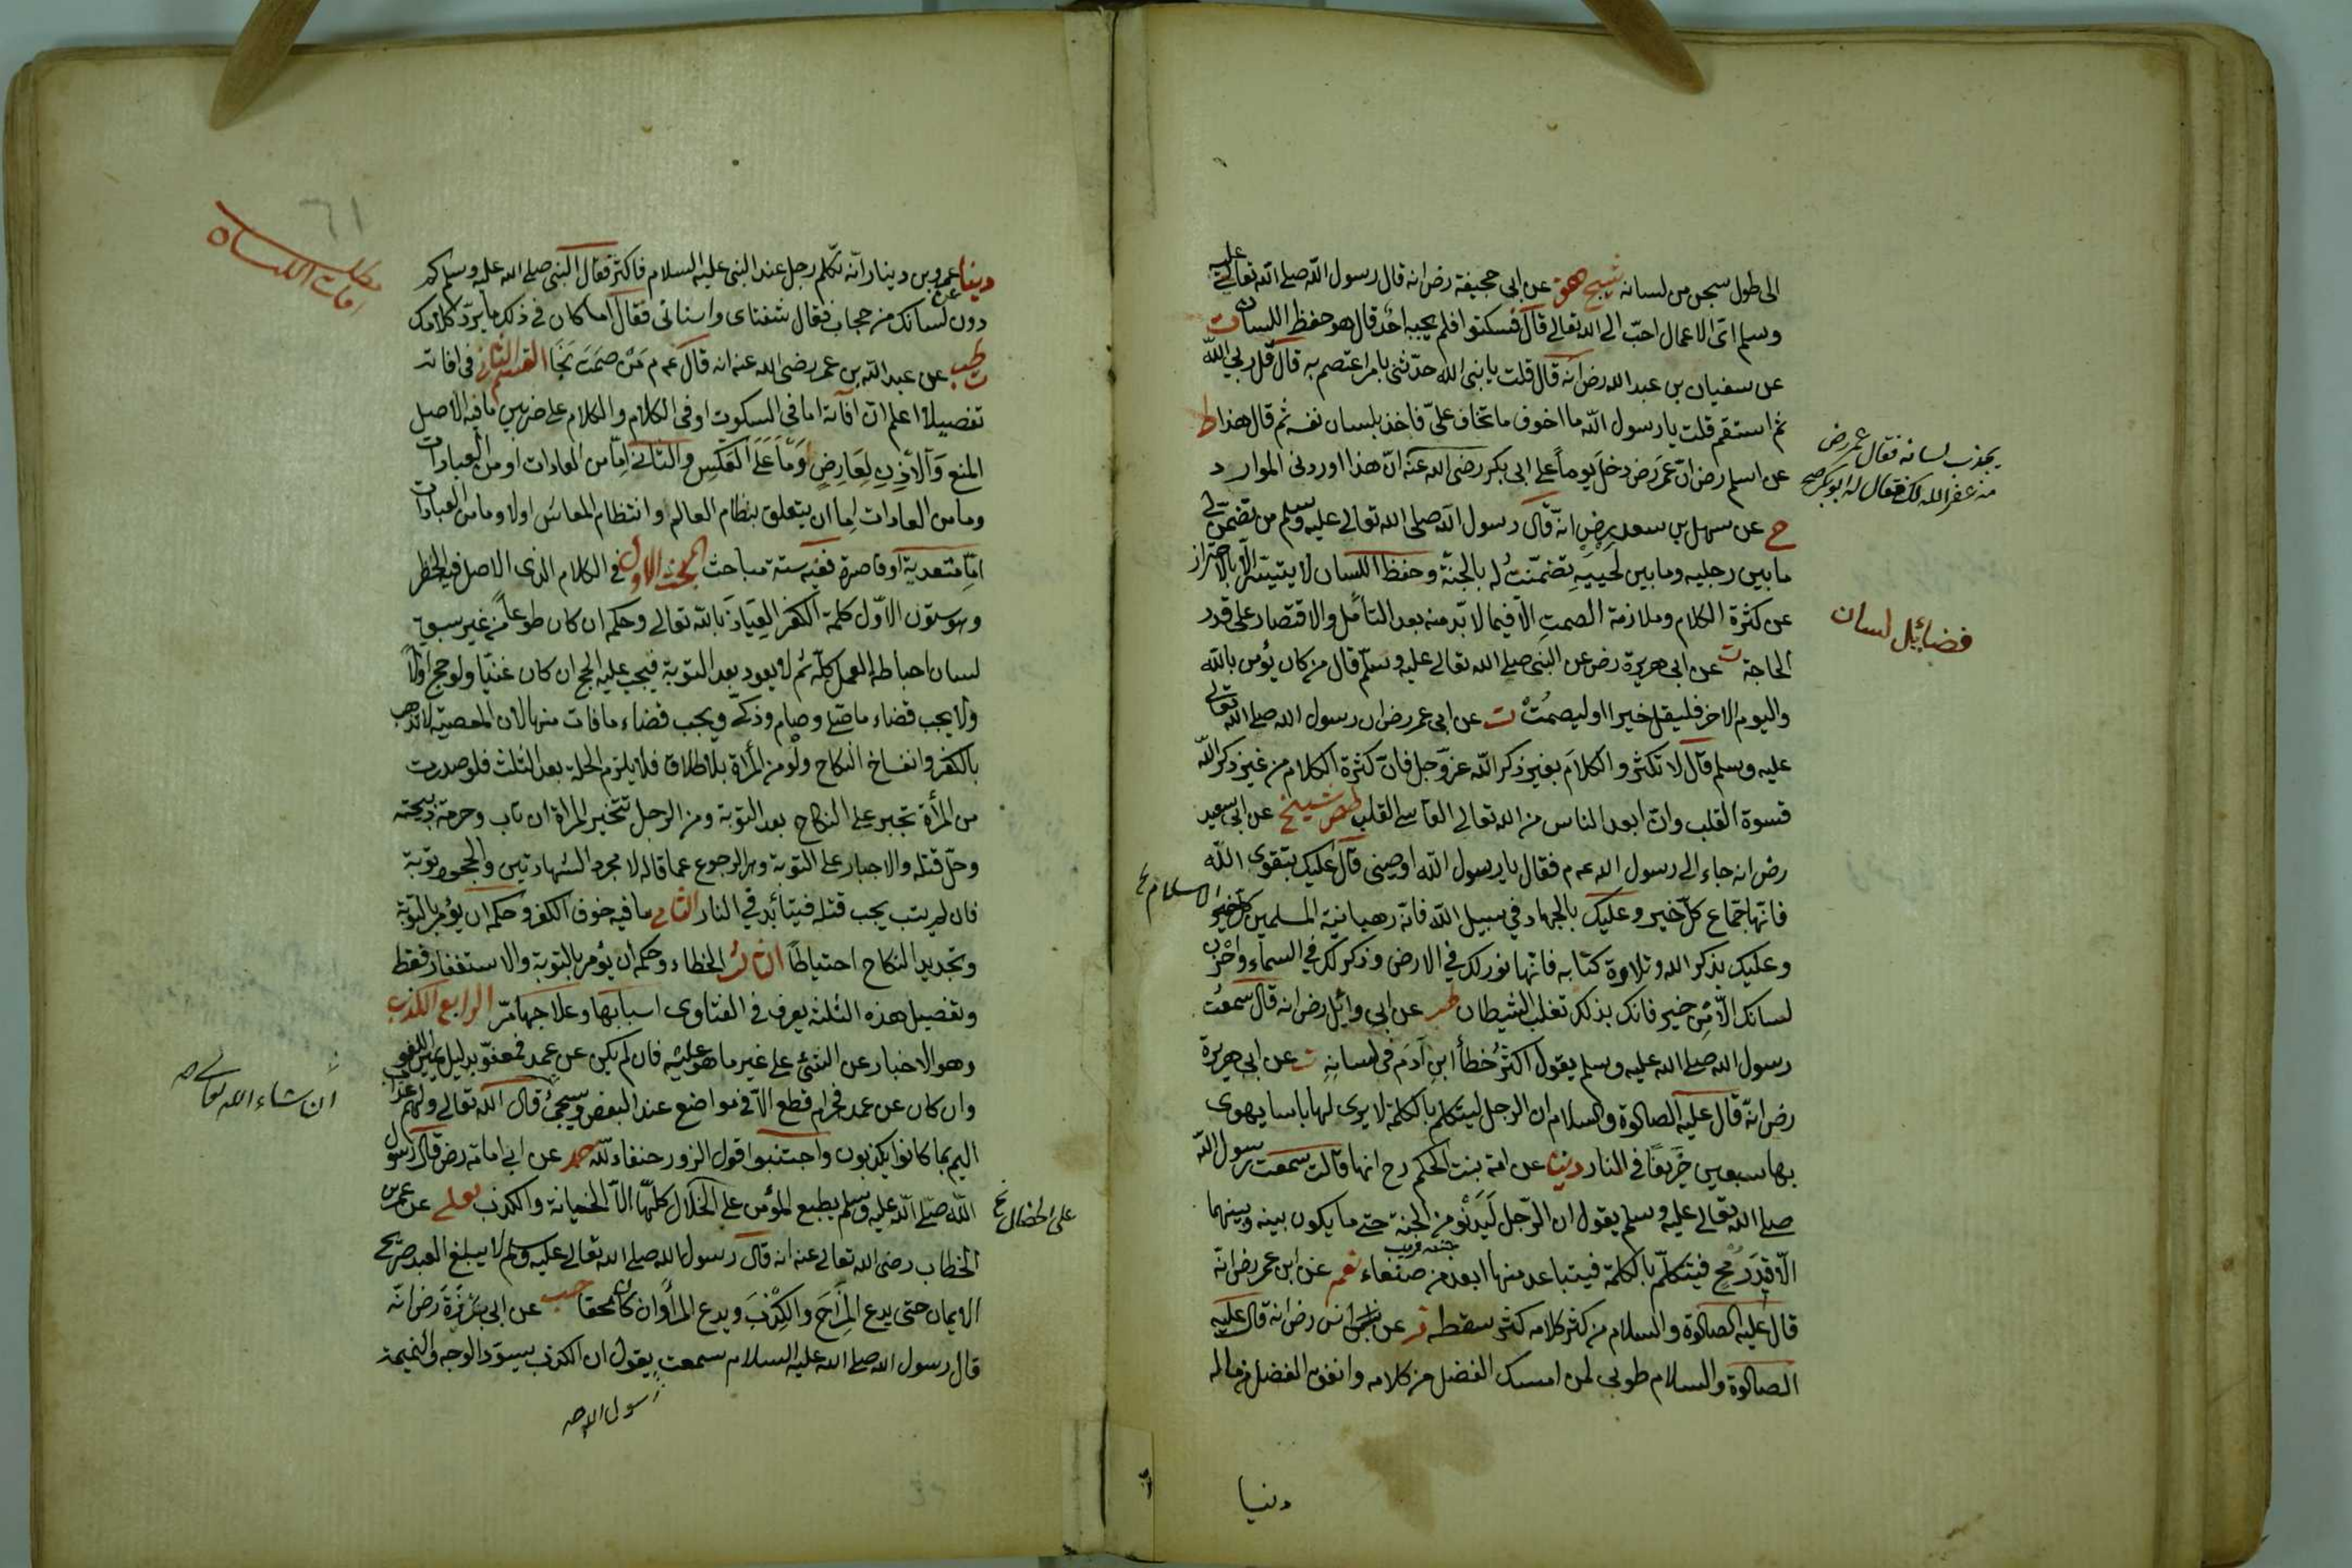 الى طول سجن من لسانه شيخ هق عن ابى جحيفة رض انه قال رسول الله صلى الله تعالى عليه
وسلم اىّ الاعمال احبّ الى الله تعالى قال فسكتوا فلم يجبه احد قال هو حفظ اللسان ت
عن سفيان بن عبد الله رض انه قال قلت يا نبى الله حدّثنى بامر اعتصم به قال قل ربى الله
ثم استقم قلت يا رسول الله ما اخوف ما تخاف علىّ فاخذ بلسان نفسه ثم قال هذا ط
عن اسلم رض ان عمر رض دخل يوماً على ابى بكر رضى الله عنه انّ هذا اوردنى الموارد
يجذب لسانه فقال عمر رض
مه غفر الله لك فقال له ابو بكر صح
خ عن سهل بن سعد رض انّه قال رسول الله صلى الله تعالى عليه وسلم من تضمّن لى
ما بين رجليه وما بين لحييه تضمّنت له بالجنّة وحفظ اللسان لا يتيسّر الّا بالاحتراز
عن كثرة الكلام وملازمة الصمت الّا فيما لا بدّ منه بعد التأمّل والاقتصار على قدر
فضائل لسان
الحاجة ت عن ابى هريرة رض عن النبى صلى الله تعالى عليه وسلّم قال من كان يؤمن بالله
واليوم الاخر فليقل خيرا او ليصمت ت عن ابى عمر رض ان رسول الله صلى الله تعالى
عليه وسلم قال لا تكثروا الكلام بغير ذكر الله عزّ وجل فان كثرة الكلام من غير ذكر الله
قسوة القلب وانّ ابعد الناس من الله تعالى القاسى القلب طص شيخ عن ابى سعيد
رض انه جاء الى رسول الله عم فقال يا رسول الله اوصينى قال عليك بتقوى الله
فانّها جماع كلّ خير وعليك بالجهاد فى سبيل الله فانّه رهبانية المسلمين
وعليك بذكر الله وتلاوة كتابه فانّها نور لك فى الارض وذكر لك فى السماء واخزن
لسانك الّا من خير فانك بذلك تغلب الشيطان طب عن ابى وائل رض انه قال سمعت
رسول الله صلى الله عليه وسلم يقول اكثر خطأ ابن آدم فى لسانه ت عن ابى هريرة
رض انّه قال عليه الصلوة والسلام ان الرجل ليتكلم بالكلمة لا يرى لها باسا يهوى
بها سبعين خريفًا فى النار دنيا عن امة بنت الحكم رح انها قالت سمعت رسول الله
صلى الله تعالى عليه وسلم يقول ان الرّجل ليدنو من الجنة حتى ما يكون بينه وبينهما
الّا قدر رمح فيتكلّم بالكلمة فيتباعد منها ابعد من صنعاء نعم عن ابن عمر رض انّه
قال عليه الصلوة والسلام من كثر كلامه كثر سقطه ز عن انس رض انه قال عليه
الصلوة والسلام طوبى لمن امسك الفضل من كلامه وانفق الفضل من ماله
دنيا
٦١
افات اللسان
دنيا عن عمرو بن دينار انّه تكلم رجل عند النبى عليه السلام فاكثر فقال النبى صلى الله عليه وسلم كم
دون لسانك من حجاب فقال شفتاى واسنانى فقال اما كان فى ذلك ما يردّ كلامك
ت طب عن عبد الله بن عمر رضى الله عنه انه قال عم من صمت نجا القسم الثانى فى افاته
تفصيلا اعلم ان آفاته اما فى السكوت او فى الكلام والكلام على ضربين ما فيه الاصل
المنع والاذن لعارض وما على العكس والثانى امّا من العادات او من العبادات
وما من العادات اما ان يتعلق بنظام العالم وانتظام المعاش اولا وما من العبادات
امّا متعدية او قاصرة ففيه ستة مباحث المبحث الاول فى الكلام الذى الاصل فيه الحظر
وهو ستون الاوّل كلمة الكفر العياذ بالله تعالى وحكمه ان كان طوعاً من غير سبق
لسان احباط العمل كلّه ثم لا يعود بعد التوبة فيجب عليه الحج ان كان غنيّا ولو حج اوّلاً
ولا يجب قضاء ما صلى وصام وزكّى ويجب قضاء ما فات منها لان المعصية لا تذهب
بالكفر وانفساخ النكاح ولو من المرأة بلا طلاق فلا يلزم الحلة بعد الثلث فلو صدرت
من المرأة تجبر على النكاح بعد التوبة ومن الرجل تتخير المرأة ان تاب وحرمة ذبيحته
وحلّ قتله والاجبار على التوبة وهى الرجوع عما قاله لا مجرد الشهادتين والجحود توبة
فان لم يتب يجب قتله فيتأبّد فى النار الثانى ما فيه خوف الكفر وحكمه ان يؤمر بالتوبة
وتجديد النكاح احتياطًا الثالث الخطاء وحكمه ان يؤمر بالتوبة والاستغفار فقط
وتفصيل هذه الثلثة يعرف فى الفتاوى اسبابها وعلاجها مرّ الرابع الكذب
وهو الاخبار عن الشئ على غير ما هو عليه فان لم يكن عن عمد فمعفوّ بدليل يمين اللغو
ان شاء الله تعالى صح
وان كان عن عمد فحرام قطع الّا فى مواضع عند البعض وسيجئ قال الله تعالى ولهم عذاب
اليم بما كانوا يكذبون واجتنبوا قول الزور حنفاء لله حد عن ابى امامة رض قال رسول
الله صلى الله عليه وسلم يطبع المؤمن على الخلال كلّها الّا الخيانة والكذب يعلى عن عمر بن
على الخصال خ
الخطاب رضى الله تعالى عنه انه قال رسول الله صلى الله تعالى عليه وسلم لا يبلغ العبد صريح
الايمان حتى يدع المزاح والكذب ويدع المراء وان كان محقا حب عن ابى برزة رض انّه
قال رسول الله صلى الله عليه السلام سمعت يقول ان الكذب يسوّد الوجه والنميمة
رسول الله صح